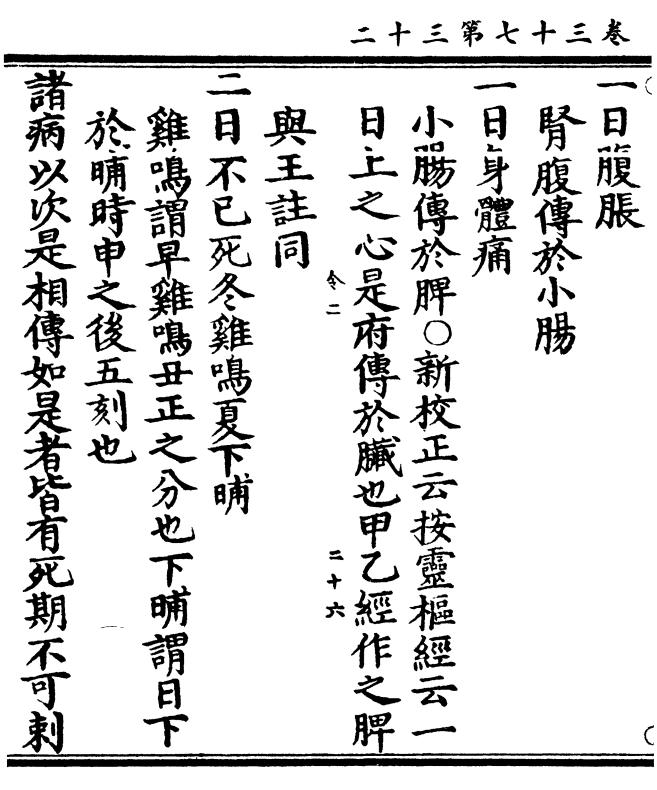 卷三十七第三十二
一日腹脹
腎腹傳於小腸
一日身體痛
小腸傳於脾○新校正云按靈樞經云一
日上之心是府傳於臟也甲乙經作之脾
令二 二十六
與王註同
二日不已死冬雞鳴夏下晡
雞鳴謂早雞鳴丑正之分也下晡謂日下
於晡時申之後五刻也
諸病以次是相傳如是者皆有死期不可刺